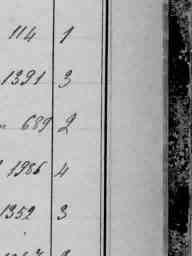 114 1
1391 3
689 2
1986 4
1352 3